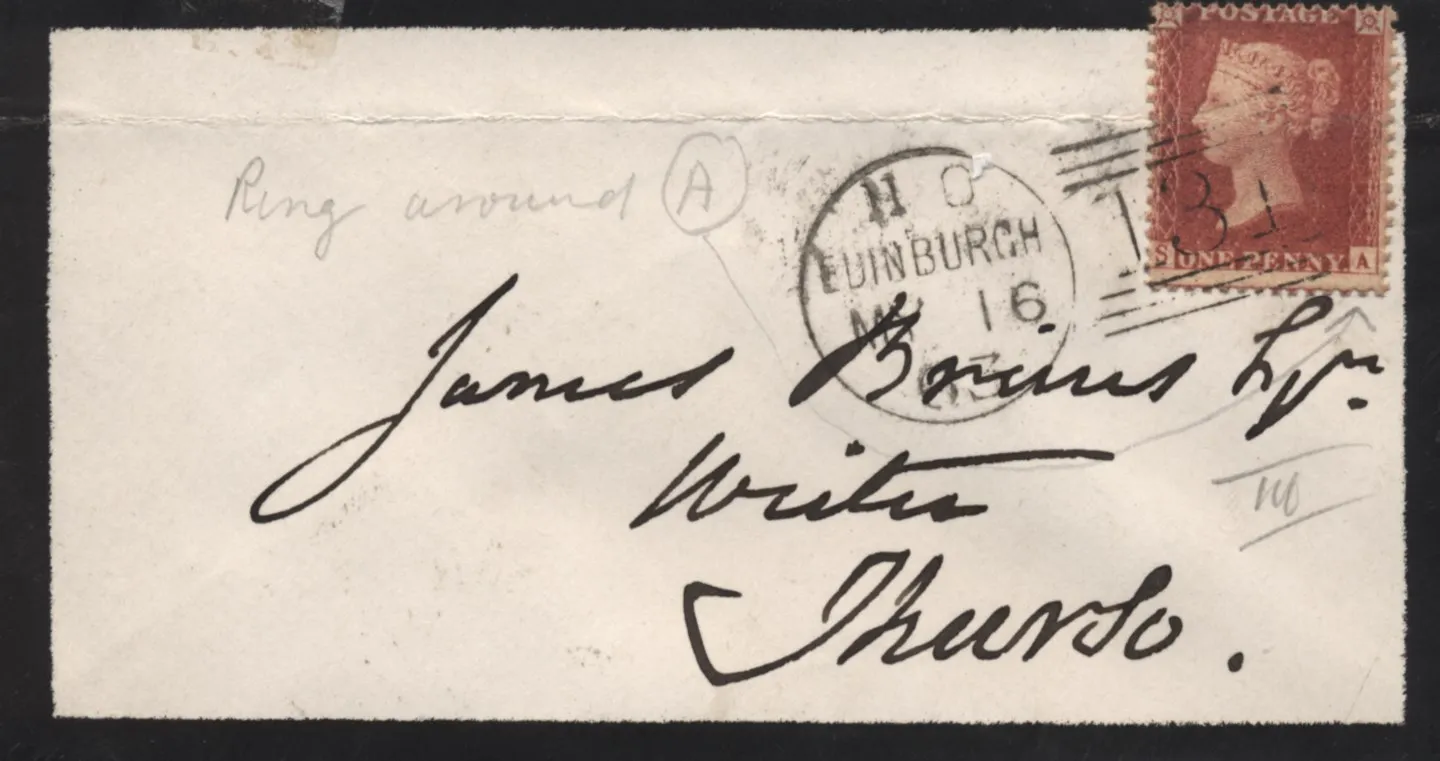 POSTAGE
Ring around A
H O
EDINBURGH
MY 16
131
S ONE PENNY. A
James Brims Esqr
Writer
Thurso.